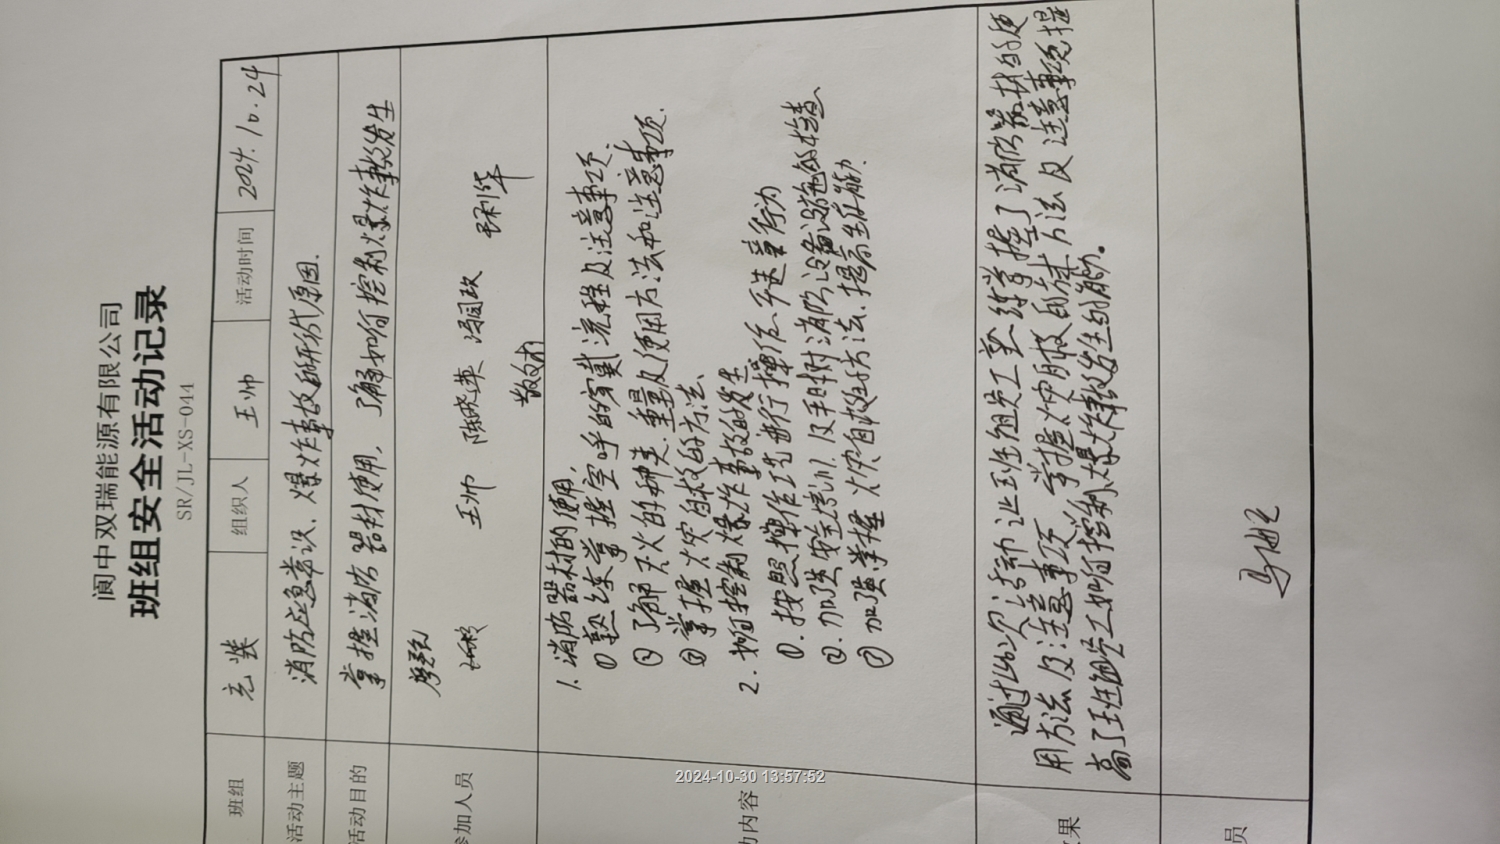 阆中双瑞能源有限公司
班组安全活动记录
SR/JL-XS-044
班组 充装 组织人 王帅 活动时间 2024.10.24
活动主题 消防应急常识、爆炸事故案例原因.
活动目的 掌握消防器材使用,了解如何控制爆炸事故发生
参加人员
王帅 陈晓英
动内容
1.消防器材的使用,
①熟练掌握空呼的穿戴流程及注意事项.
②了解灭火的种类.重量及使用方法和注意事项.
③掌握火灾自救的方法、
2.如何控制爆炸事故的发生
①.按照操作工艺进行操作、不违章行为
②.加强安全培训.及手时对消防设备设施的检查、
③加强掌握火灾自救方法、提高生存能力.
果
通过此次活动让班组员工熟练掌握了消防器材的使
用方法及注意事项,掌握火灾自救的技术方法及注意事项提
高了班组员工如何控制爆炸事故发生的能力。
员
2024-10-30 13:57:52